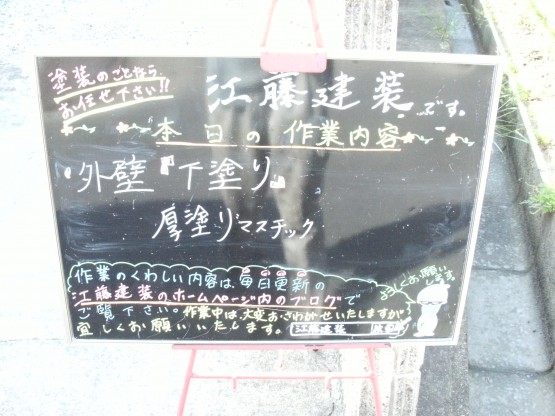 塗装のことなら
お任せ下さい!!
江藤建装です。
本日の作業内容
外壁『下塗り』
厚塗りマスチック
作業のくわしい内容は、毎日更新の
江藤建装のホームページ内のブログで
ご覧下さい。作業中は、大変おさわがせいたしますが
宜しくお願いいたします。江藤建装
よろしくお願いします